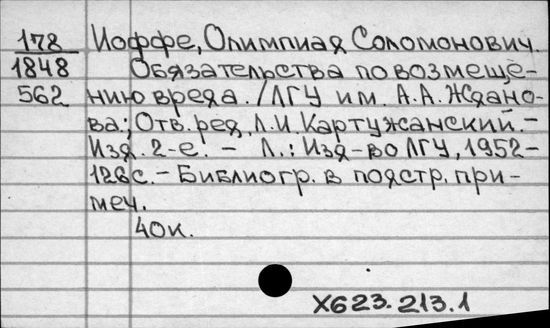 178 Иоффе, Олимпиад Соломонович.
1848 Обязательства по возмеще-
562 нию вреда. /ЛГУ им. А.А.Ждано-
ва.; Отв. ред. Л.И.Картужанский.-
Изд. 2-е. - Л.: Изд-во ЛГУ, 1952-
126с.- Библиогр. в подстр. при-
меч.
40к.
X623.213.1